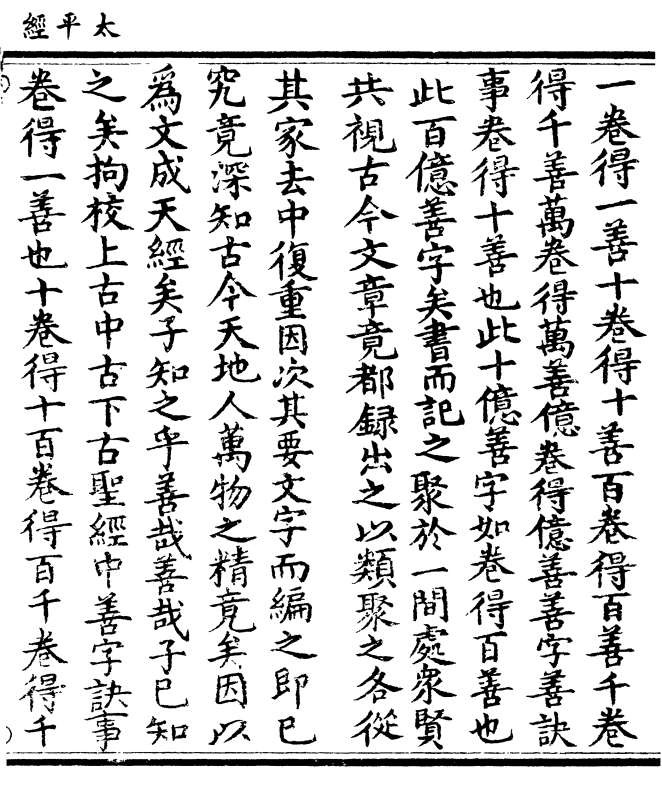 太平經
一卷得一善十卷得十善百卷得百善千卷
得千善萬卷得萬善億卷得億善善字善訣
事卷得十善也此十億善字如卷得百善也
此百億善字矣書而記之聚於一間處眾賢
共視古今文章竟都録出之以類聚之各從
其家去中復重因次其要文字而編之即已
究竟深知古今天地人萬物之精竟矣因以
爲文成天經矣子知之乎善哉善哉子已知
之矣拘校上古中古下古聖經中善字訣事
卷得一善也十卷得十百卷得百千卷得千